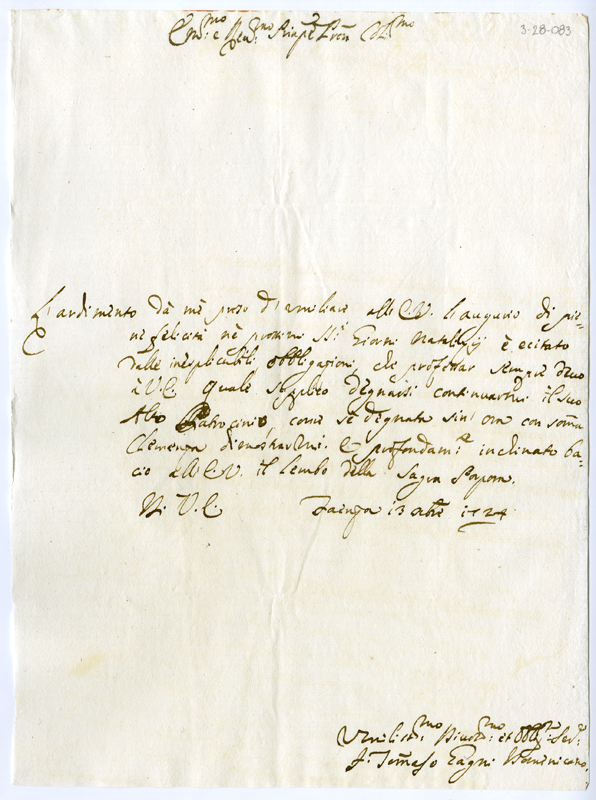 3-28-083
Em.mo e Rev.mo Sig.re Pron
L'ardimento da me preso d'umiliare all'E.V. l'augurio di pie-
ne felicità ne prossimi SS.i Giorni Natalizj è ecitato
dalle inesplicabili obbligazioni, che professar sempre devo
à V.E. quale supplico degnarsi continuarmi il suo
Alto Patrocinio, come s'è degnata sin' ora con somma
Clemenza dimostrarmi. E profondam.te inclinato ba-
cio all'E.V. il lembo della Sagra Porpora.
Di V.E. Faenza 13 Xbre 1724
Umiliss.mo Divot.mo et Obblig.mo Ser.e
F. Tomaso Domenicano